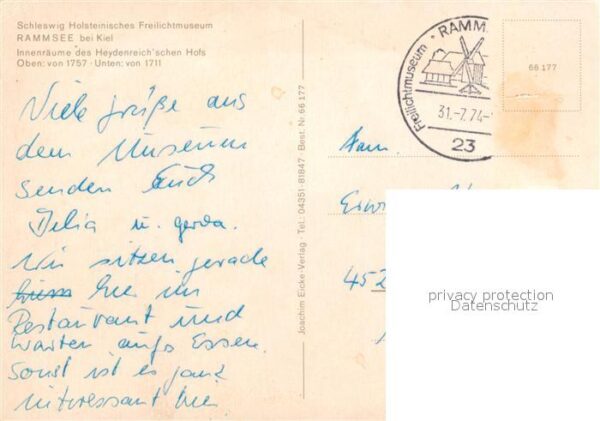 Schleswig Holsteinisches Freilichtmuseum
RAMMSEE bei Kiel
Innenräume des Heydenreich'schen Hofs
Oben: von 1757 · Unten: von 1711
Viele Grüße aus
dem Museum
senden Euch
Delia u. Gerda.
Wir sitzen gerade
hier im
Restaurant und
warten aufs Essen.
Sonst ist es ganz
interessant hier
Joachim Eicke-Verlag Tel.: 04351-81847 Best. Nr. 66 177
RAMM
Freilichtmuseum
31.-7.74-
23
66 177
Fam.
Erw
452
privacy protection
Datenschutz